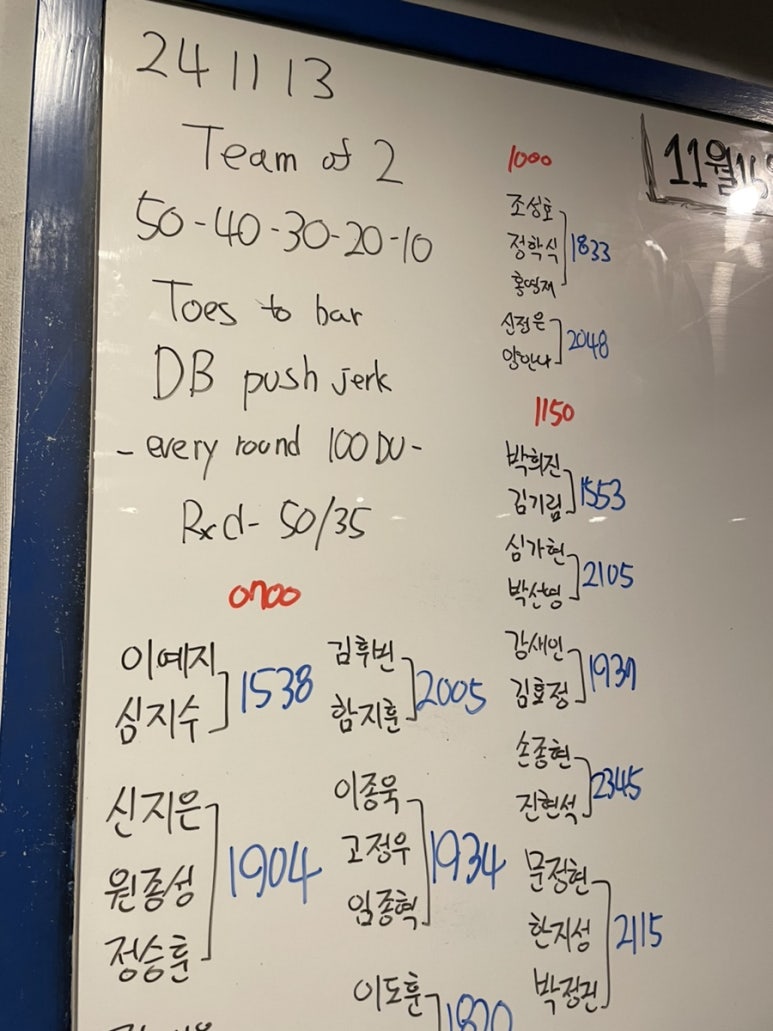 24 11 13
Team of 2
50-40-30-20-10
Toes to bar
DB push jerk
- every round 100 DU -
Rxd- 50/35
0700
이예지
심지수
1538
신지은
원종성
정승훈
1904
김후빈
함지훈
2005
이종욱
고정우
임종혁
1934
이도훈
1820
1000
조성호
정학식
홍영재
1833
신정은
양안나
2048
1150
박희진
김기림
1553
심가현
박선영
2105
강새인
김효정
1937
손종현
진현석
2345
문정현
한지성
박정진
2115
11월